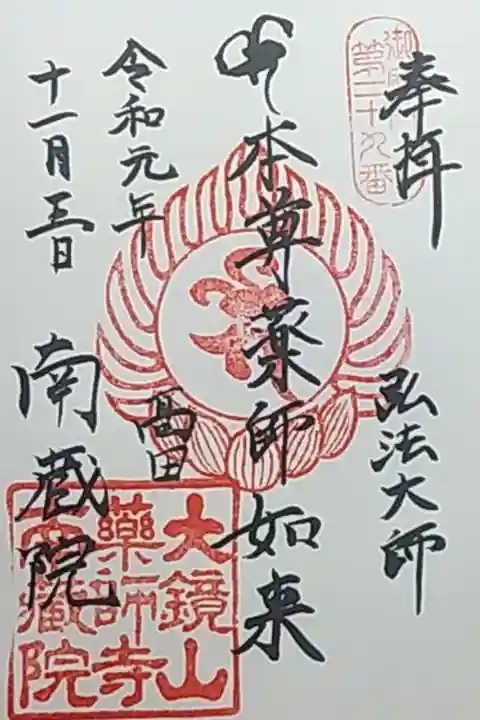 奉拝
弘法大師
本尊薬師如来
令和元年
十一月三日
高田
南蔵院
第二十九番
大鏡山
薬師寺
南蔵院